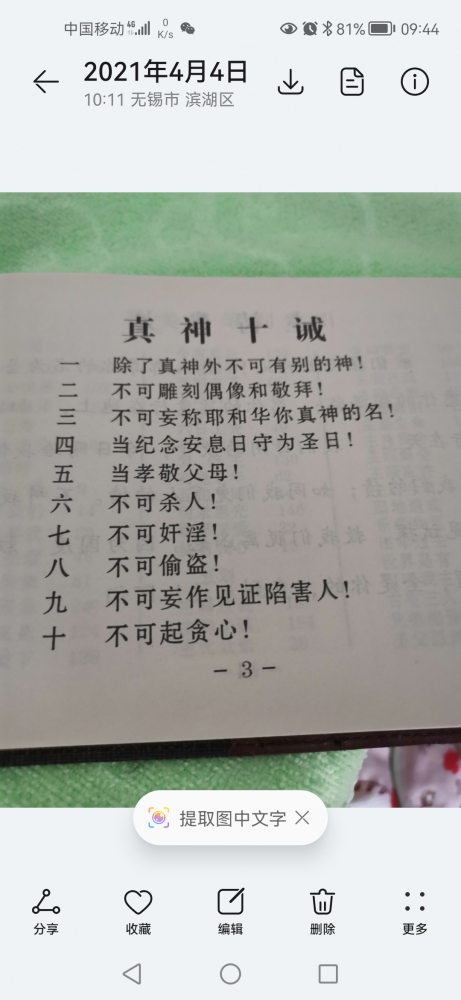 中国移动 4G 0 K/s 81% 09:44
2021年4月4日
10:11 无锡市 滨湖区
真神十诫
一 除了真神外不可有别的神！
二 不可雕刻偶像和敬拜！
三 不可妄称耶和华你真神的名！
四 当纪念安息日守为圣日！
五 当孝敬父母！
六 不可杀人！
七 不可奸淫！
八 不可偷盗！
九 不可妄作见证陷害人！
十 不可起贪心！
－3－
提取图中文字
分享 收藏 编辑 删除 更多